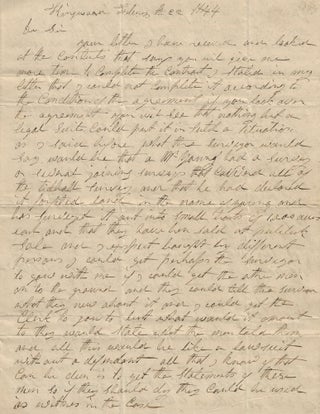 Dr Sir
your letter I have received and looked
at the Contents that says you will give me
more time to Complete the Contract I Stated in my
letter that I could not Complete it according to
the Conditions of the agreement if you look over
the agreement you will See that nothing but a
legal Suit could put it in Such a Situation
as I said before what the Surveyor would
Say would be that a Mr Young had a survey
or joining surveys that all of
the survey and that he had
it land in the name of and
has it and into Small tracts of acres
each and that they have been Sold at publick
Sale and I expect bought by different
persons I could get perhaps the Surveyor
to go with me if I could get the other men
on to the ground and they could tell the Surveyor
what they new about it and I could get the
Clerk to go to but what would it amount
to they would State what the men told them
and all this would be like a lawsuit
without a defendant all that I know of that
can be done is to get the Statements of these
men So if they Should die they Could be used
as witness in the Case